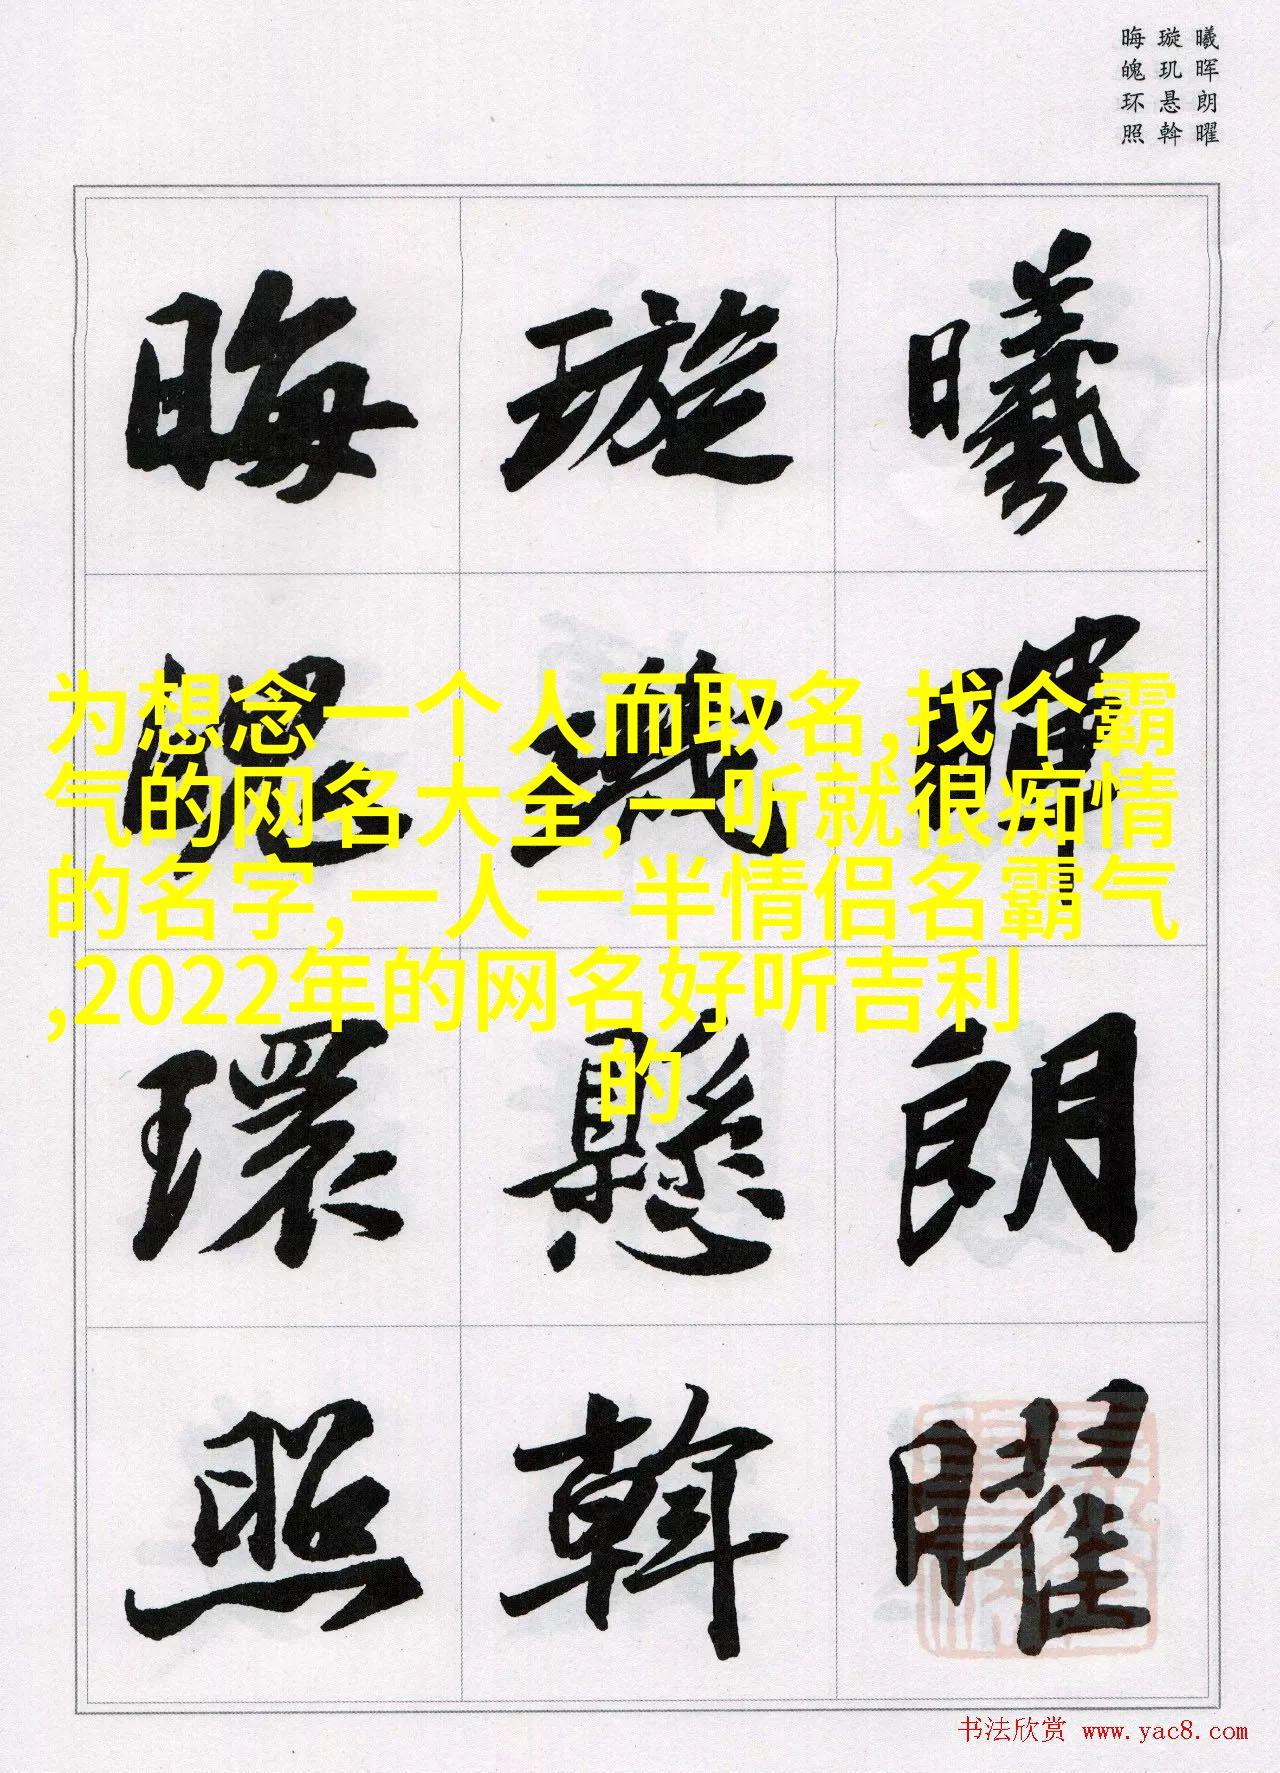 曦晖朗曜
璇玑悬斡
晦魄环照
曦暉朗曜
璇璣懸斡
晦魄環照
为想念一个人而取名,找个霸
气的网名大全,一听就很痴情
的名字,一人一半情侣名霸气
,2022年的网名好听吉利
的
书法欣赏 www.yac8.com